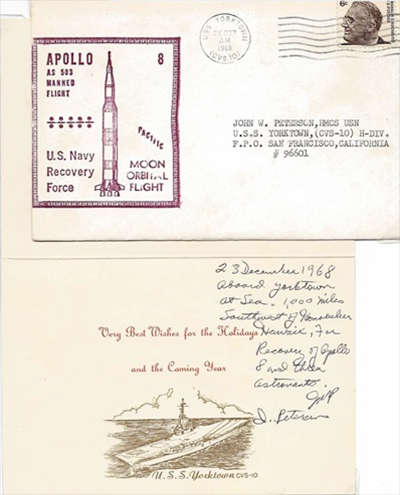 APOLLO 8
AS 503
MANNED
FLIGHT
U.S. Navy
Recovery
Force
PACIFIC
MOON
ORBITAL
FLIGHT
USS YORKTOWN
DEC 27
AM
1968
(CVS-10)
6c
JOHN W. PETERSON, HMCS USN
U.S.S. YORKTOWN,(CVS-10) H-DIV.
F.P.O. SAN FRANCISCO,CALIFORNIA
# 96601
23 December 1968
Aboard Yorktown
at Sea. 1,000 miles
Southwest of Honolulu
Hawaii, For
Recovery of Apollo
8 and three
astronauts.
JWP
J. Peterson
Very Best Wishes for the Holidays
and the Coming Year
U.S.S. Yorktown CVS-10